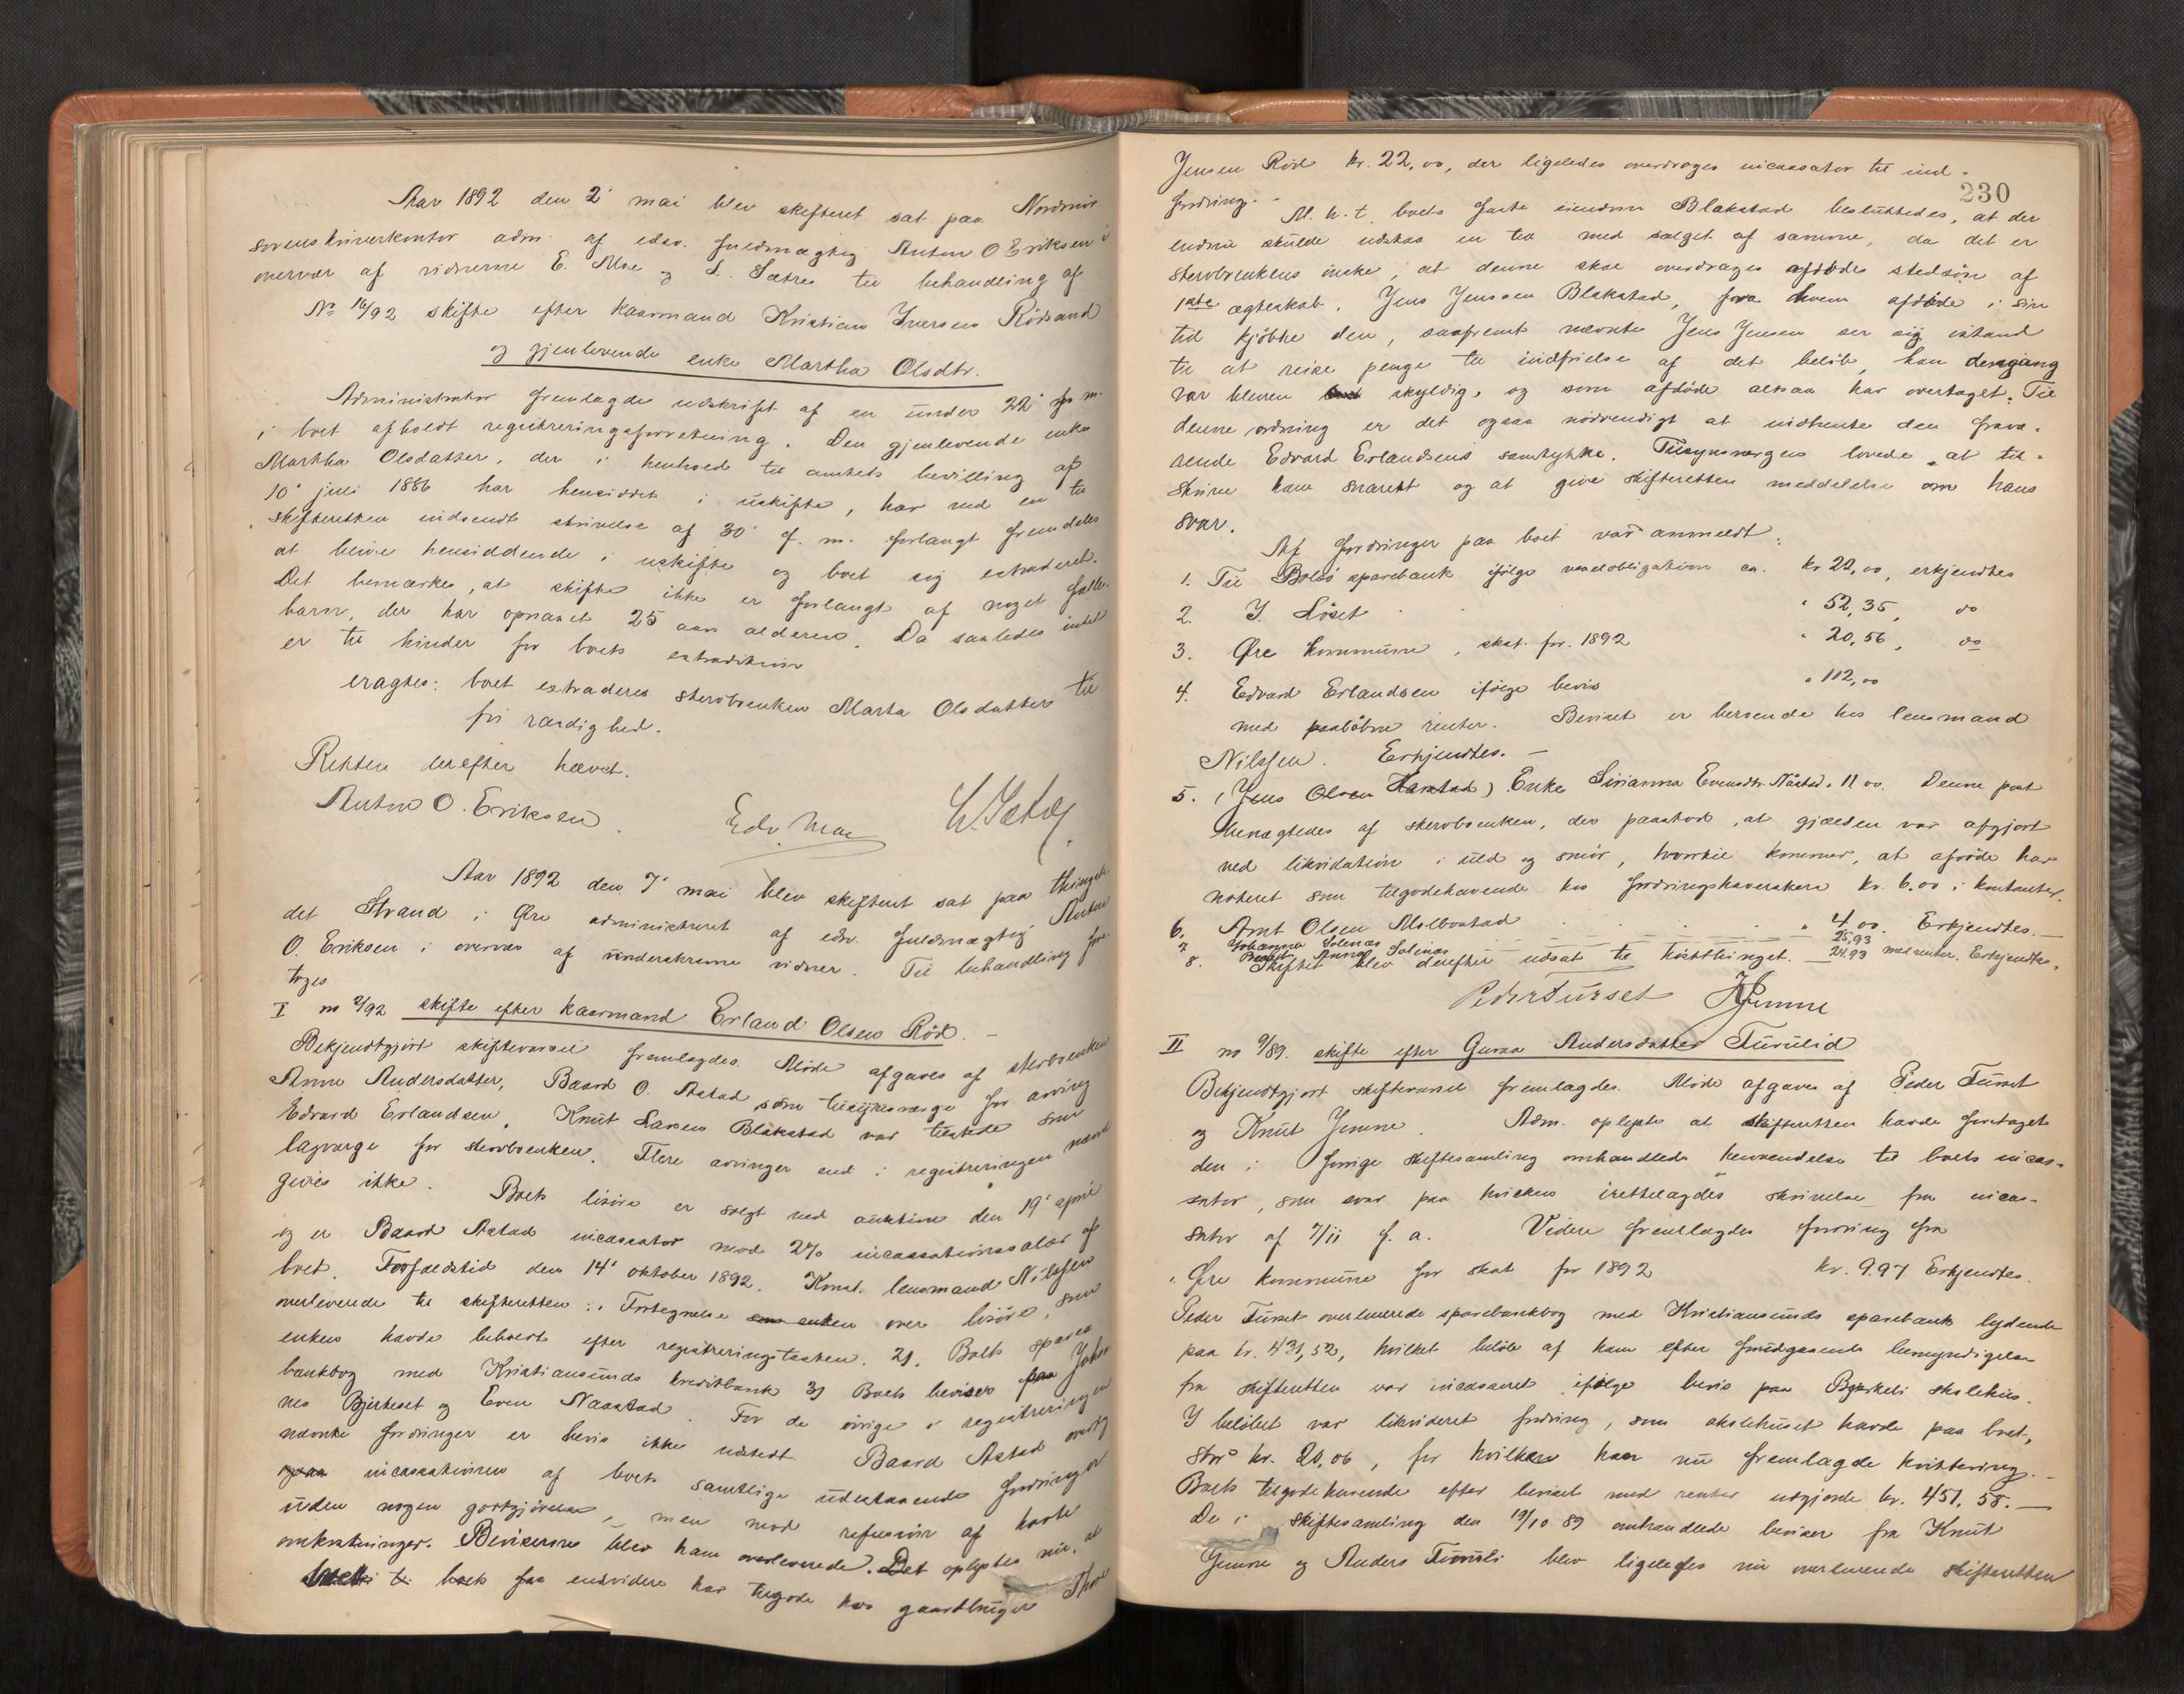 Aar 1892 den 2' mai blev skifteret sat paa Nordmør
sorenskriverkontor adm. af edsv. fuldmægtig Anton O Eriksen i
overvær af vidnerne E. Moe og L. Sætre til behandling af
No 16/92 skifte efter kaarmand Kristian Iversen Rödsand
og gjenlevende enke Martha Olsdtr.
Administrator fremlagde udskrift af en under 22' f. m.
i boet afholdt registreringsforretning. Den gjenlevende enke
Martha Olsdatter, der i henhold til amtets bevilling af
10' juli 1886 har hensiddet i uskifte, har ved en til
skifteretten indsendt skrivelse af 30' f. m. forlangt fremdeles
at blive hensiddende i uskifte og boet sig extraderet.
Det bemærkes, at skifte ikke er forlangt af noget fælles-
barn, der har opnaaet 25 aars alderen. Da saaledes intet
er til hinder for boets extradition
eragtes: boet extraderes sterboenken Marta Olsdatter til
fri raadighed.
Retten derefter hævet.
Anton O. Eriksen. Edv. Moe L. Sætre
Aar 1892 den 7' mai blev skifteret sat paa thingste-
det Strand i Øre administreret af edsv. fuldmægtig Anton
O. Eriksen i overvær af underskrevne vidner. Til behandling fore-
toges
I no 2/92 skifte efter kaarmand Erland Olsen Röd. -
Bekjendtgjort skiftevarsel fremlagdes. Møde afgaves af sterboenken
Anne Andersdatter, Baard O. Astad som tilsynsværge for arving
Edvard Erlandsen. Knut Larsen Blakstad var tilstede som
lagværge for sterboenken. Flere arvinger end i registreringen nævnt
gives ikke. Boets lösöre er solgt ved auktion den 19' april
og er Baard Aastad incassator mod 2% incassationssalær af
boet. Forfaldstid den 14' oktober 1892. Konst. lensmand Nilssen
overleverede til skifteretten: 1 Fortegnelse som enken over lösöre, som
enken havde beholdt efter registreringstaxten. 2). Boets spare-
bankbog med Kristiansunds kreditbank 3) Boets beviser paa Johan-
nes Bjerkeset og Even Naastad. For de övrige i registreringen
nævnte fordringer er bevis ikke udstedt. Baard Astad overtog
ogsaa incassationen af boets samtlige udestaaende fordringer
uden nogen godtgjörelse, - men mod refusion af havte
omkostninger. Beviserne blev ham overleverede. Det oplystes nu, at
boets fra endvidere har tilgode hos gaardbruger Thore
230
Jensen Röd kr. 22,00, der ligeledes overdroges incassator til ind-
fordring. -
M. h. t. boets faste eiendom Blakstad besluttedes, at der
endnu skulde udstaa en tid med salget af samme, da det er
sterboenkens önske, at denne skal overdrages afdødes stedsön af
1ste ægteskab, Jens Jensen Blakstad, fra hvem afdøde i sin
tid kjöbte den, saafremt nævnte Jens Jensen ser sig istand
til at reise penge til indfrielse af det beløb, han dengang
var bleven skyldig, og som afdøde altsaa har overtaget. Til
denne ordning er det ogsaa nødvendigt at indhente den fravæ-
rende Edvard Erlandsens samtykke. Tilsynsværgen lovede at til-
skrive ham snarest og at give skifteretten meddelelse om hans
svar.
Af fordringer paa boet var anmeldt:
1. Til Bolsö sparebank ifölge vexelobligation ca. kr 22,00, erkjendtes
2. I. Löset " 52,35, do
3. Øre kommune, skat for 1892 " 20,56, do
4. Edvard Erlandsen ifölge bevis " 112,00
med paalöbne renter. Beviset er beroende hos lensmand
Nilssen. Erkjendtes. -
5. (Jens Olsen Harstad) Enke Sirianna Evensdtr. Nåstad " 11 00. Denne post
benægtedes af sterboenken, der paastod, at gjælden var afgjort
ved likvidation i uld og smör, hvortil kommer, at afdøde har
noteret som tilgodehavende hos fordringshaversken kr. 6.00 i kontanter.
6. Arnt Olsen Molbostad " 4.00. Erkjendtes. -
7. Johanna Solenæs 25,93
8. Berit Anna Solnæs 24.93 med renter. Erkjendtes.
Skiftet blev derefter udsat til høstthinget.
Peder Furset K Jemne
II no 9/89. skifte efter Guraa Andersdatter Furulid
Bekjendtgjort skiftevarsel fremlagdes. Møde afgaves af Peder Furset
og Knut Jemne. Adm. oplyste at skifteretten havde foretaget
den i forrige skiftesamling omhandlede henvendelse til boets incas-
sator, som svar paa hvilken irettelagdes skrivelse fra incas-
sator af 7/11 f. a. Videre fremlagdes fordring fra
1. Øre kommune for skat for 1892 kr. 9.97. Erkjendtes.
Peder Furset overleverede sparebankbog med Kristiansunds sparebank lydende
paa kr. 431,52, hvilket beløb af ham efter forudgaaende bemyndigelse
fra skifteretten var incasseret ifølge bevis paa Byrkeli skolehus.
I beløbet var likvideret fordring, som skolehuset havde paa boet,
stor kr. 20.06, for hvilken han nu fremlagde kvittering. -
Boets tilgodehavende efter beviset med renter udgjorde kr. 451.58. -
De i skiftesamling den 19/10 89 omhandlede beviser fra Knut
Jemne og Anders Furuli blev ligeledes nu overleverede skifteretten